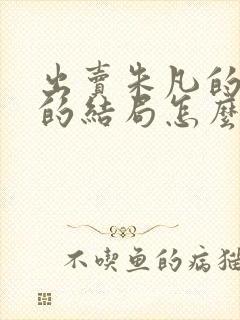 出賣朱凡的
的結局怎麼
不喫鱼的病猫